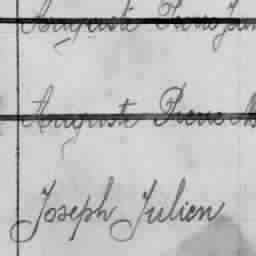 Auguste Pierre
Auguste Pierre
Joseph Julien